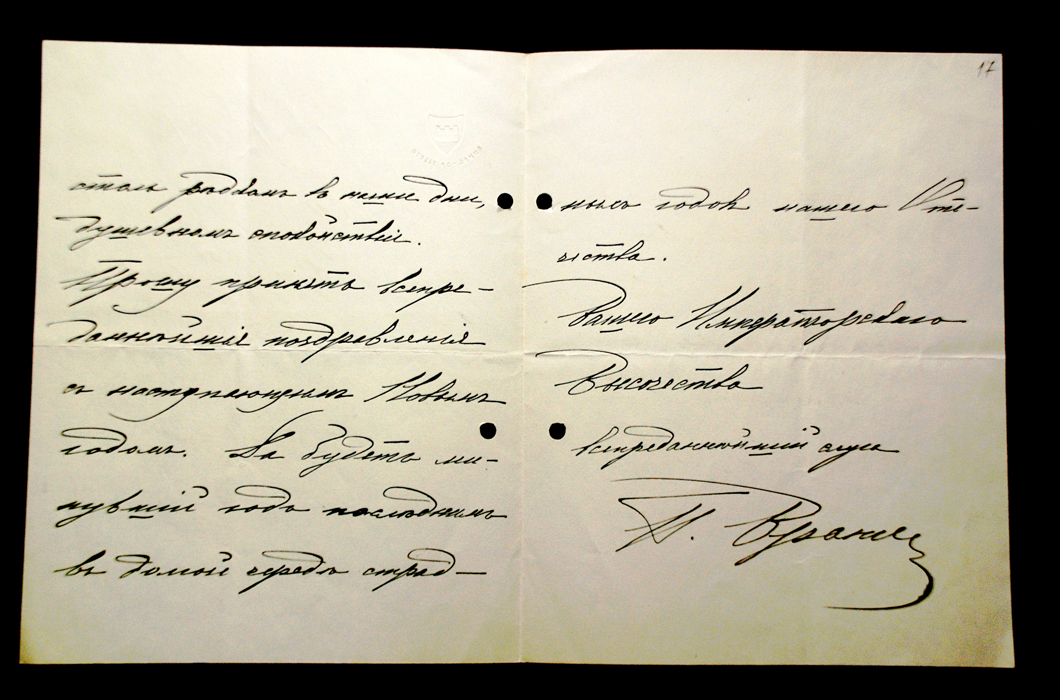 столь рѣдкомъ въ наши дни,
душевномъ спокойствіи.
Прошу принять всепре-
даннѣйшія поздравленія
съ наступающимъ Новымъ
годомъ. Да будетъ ми-
нувшій годъ послѣднимъ
въ долгой чредѣ страд-
17
ныхъ годовъ нашего Оте-
чества.
Вашего Императорскаго
Высочества
всепреданнѣйшій слуга
П. Врангель